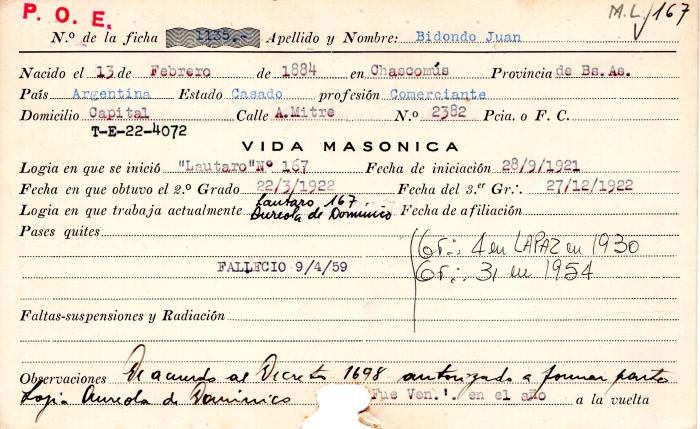 P. O. E.
M.L./167
N.º de la ficha 1135.- Apellido y Nombre: Bidondo Juan
Nacido el 13 de Febrero de 1884 en Chascomús Provincia de Bs.As.
País Argentina Estado Casado profesión Comerciante
Domicilio Capital Calle A.Mitre N.º 2382 Pcia. o F. C.
T-E-22-4072
VIDA MASONICA
Logia en que se inició "Lautaro"Nº 167 Fecha de iniciación 28/9/1921
Fecha en que obtuvo el 2.º Grado 22/3/1922 Fecha del 3.er Gr∴ 27/12/1922
Logia en que trabaja actualmente Lautaro 167. Aureola de Dominico Fecha de afiliación
Pases quites
Gr∴ 4 en LAPAZ en 1930
FALLECIO 9/4/59
Gr∴ 31 en 1954
Faltas-suspensiones y Radiación
Observaciones De acuerdo al Decreto 1698 autorizado a formar parte
Logia Aureola de Dominico Fue Ven.'. en el año a la vuelta